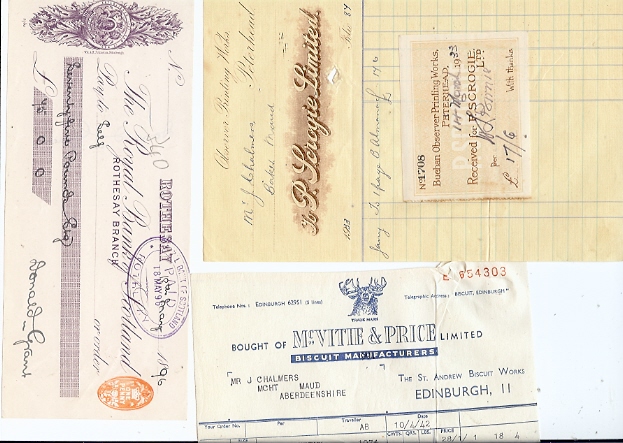 No 340
ROTHESAY
18 May 1896
The Royal Bank of Scotland
ROTHESAY BRANCH
Pay to Self
or order
Seventy five Pounds Stg
£ 75 0 0
Donald Grant
ROYAL BANK
18 MAY 96
PENNY
Observer Printing Works
Peterhead
Mr J Chalmers
Baker Maud
To P. Scrogie, Limited.
Folio 84
1933
Jany To ½ page B Almanack £ 17 6
No 1708
Buchan Observer Printing Works,
PETERHEAD, 14 March 1933
Received for P. SCROGIE, LTD.
Per
£ 17/6
With thanks
E 654303
Telephone Nos.: EDINBURGH 62951 (5 lines)
Telegraphic Address: "BISCUIT, EDINBURGH"
TRADE MARK
BOUGHT OF McVITIE & PRICE LIMITED
BISCUIT MANUFACTURERS
MR J CHALMERS
MCHT MAUD
ABERDEENSHIRE
THE ST. ANDREW BISCUIT WORKS
EDINBURGH, 11
Your Order No. Per Traveller Date
AB 10/4/42
CWTS. QRS. LBS. PRICE
28/1/1 18 4